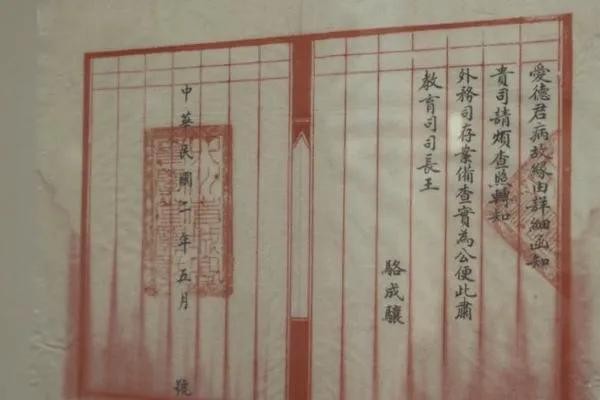 愛德君病故緣由詳細函知
貴司請煩查照轉知
外務司存案備查實為公便此肅
教育司司長王
駱成驤
中華民國二年五月
號